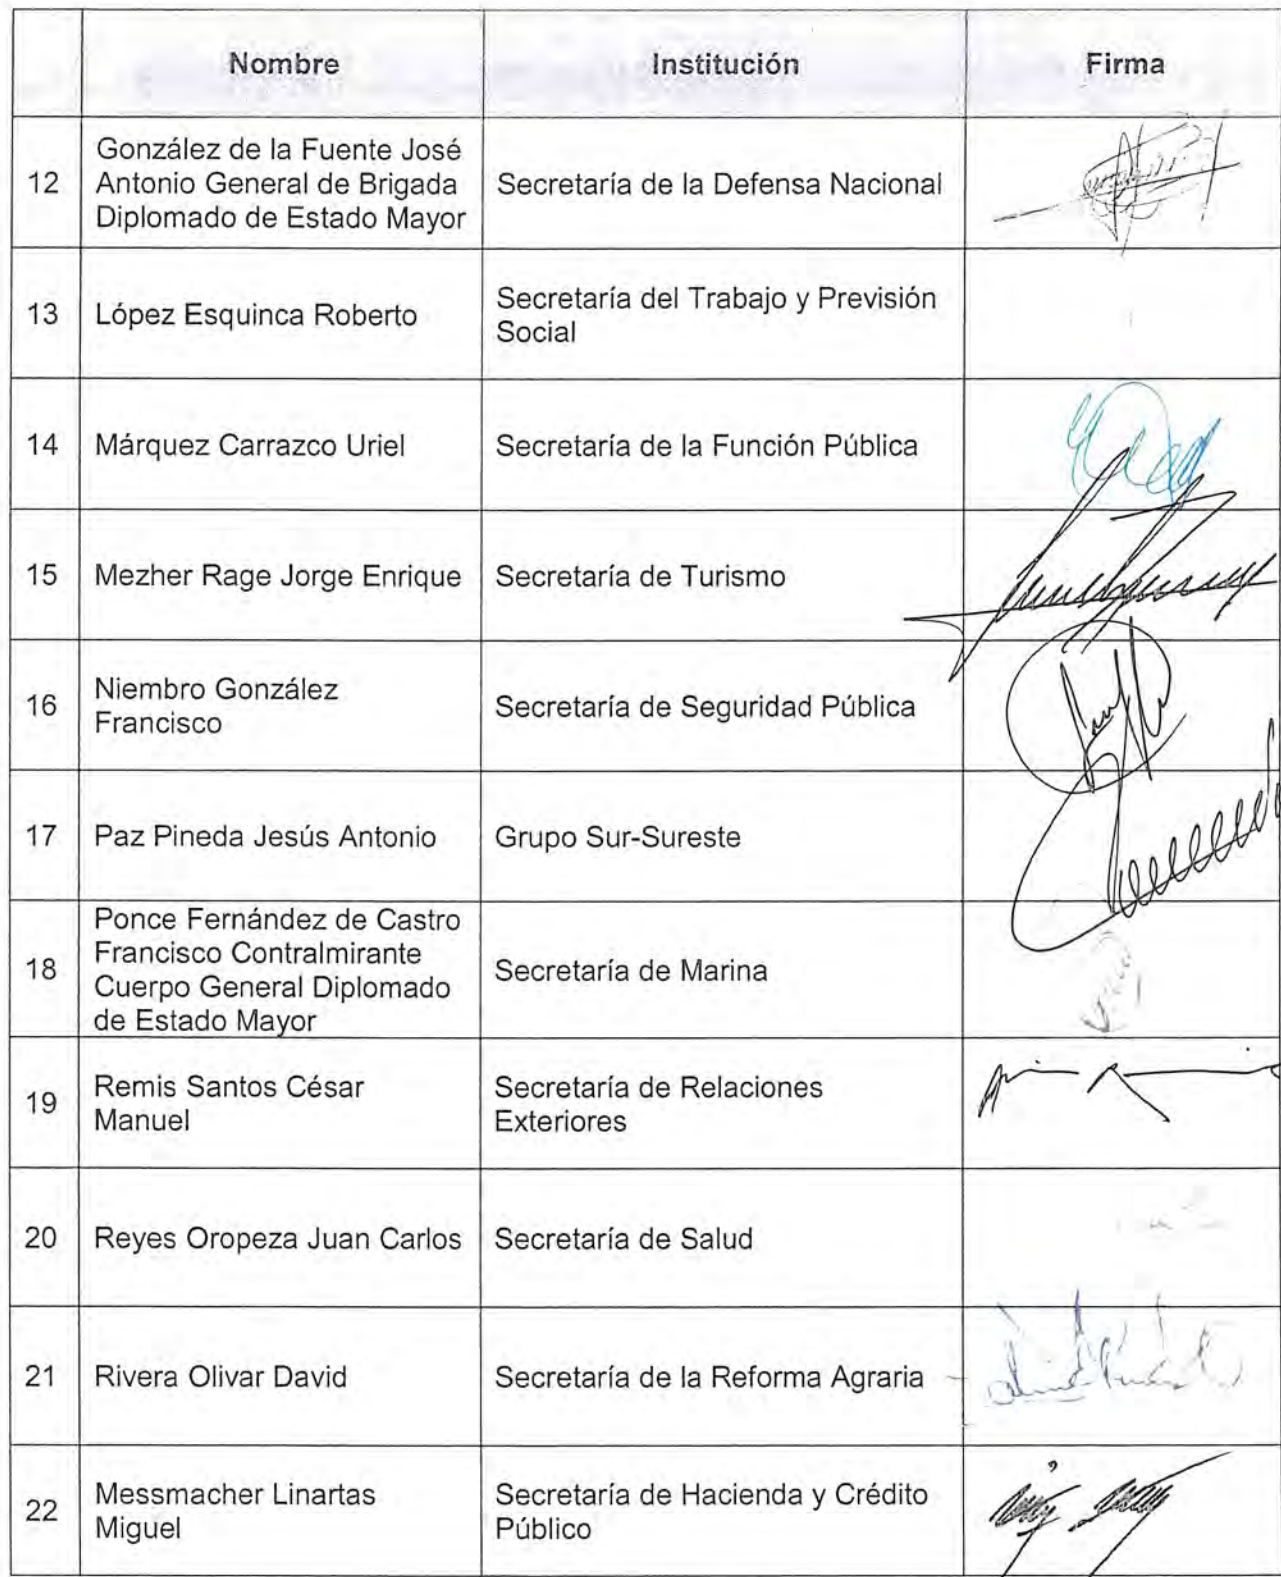 Nombre Institución Firma
12 González de la Fuente José
Antonio General de Brigada
Diplomado de Estado Mayor
Secretaría de la Defensa Nacional
13 López Esquinca Roberto
Secretaría del Trabajo y Previsión
Social
14 Márquez Carrazco Uriel
Secretaría de la Función Pública
15 Mezher Rage Jorge Enrique
Secretaría de Turismo
16 Niembro González
Francisco
Secretaría de Seguridad Pública
17 Paz Pineda Jesús Antonio
Grupo Sur-Sureste
18 Ponce Fernández de Castro
Francisco Contralmirante
Cuerpo General Diplomado
de Estado Mayor
Secretaría de Marina
19 Remis Santos César
Manuel
Secretaría de Relaciones
Exteriores
20 Reyes Oropeza Juan Carlos
Secretaría de Salud
21 Rivera Olivar David
Secretaría de la Reforma Agraria
22 Messmacher Linartas
Miguel
Secretaría de Hacienda y Crédito
Público